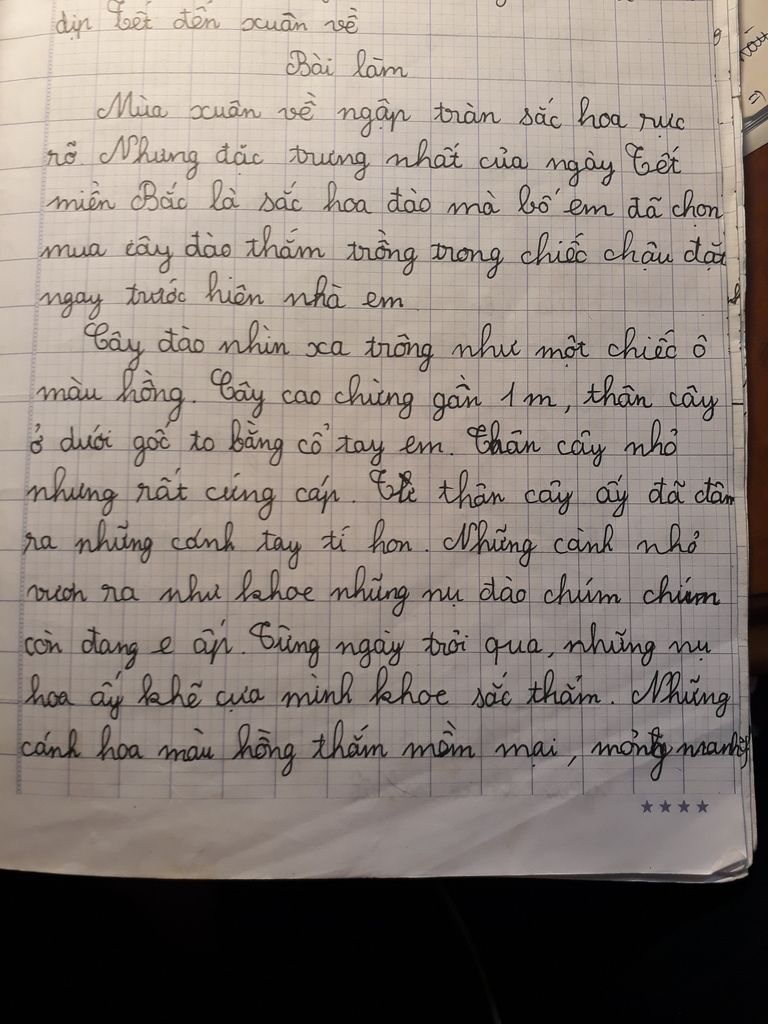 dịp Tết đến xuân về
Bài làm
Mùa xuân về ngập tràn sắc hoa rực
rỡ Nhưng đặc trưng nhất của ngày Tết
miền Bắc là sắc hoa đào mà bố em đã chọn
mua cây đào thắm trồng trong chiếc chậu đặt
ngay trước hiên nhà em
Cây đào nhìn xa trông như một chiếc ô
màu hồng. Cây cao chừng gần 1m, thân cây
ở dưới gốc to bằng cổ tay em. Thân cây nhỏ
nhưng rất cứng cáp. Từ thân cây ấy đã đâm
ra những cánh tay tí hon. Những cành nhỏ
vươn ra như khoe những nụ đào chúm chím
còn đang e ấp. Từng ngày trôi qua, những nụ
hoa ấy khẽ cựa mình khoe sắc thắm. Những
cánh hoa màu hồng thắm mềm mại, mỏng manh